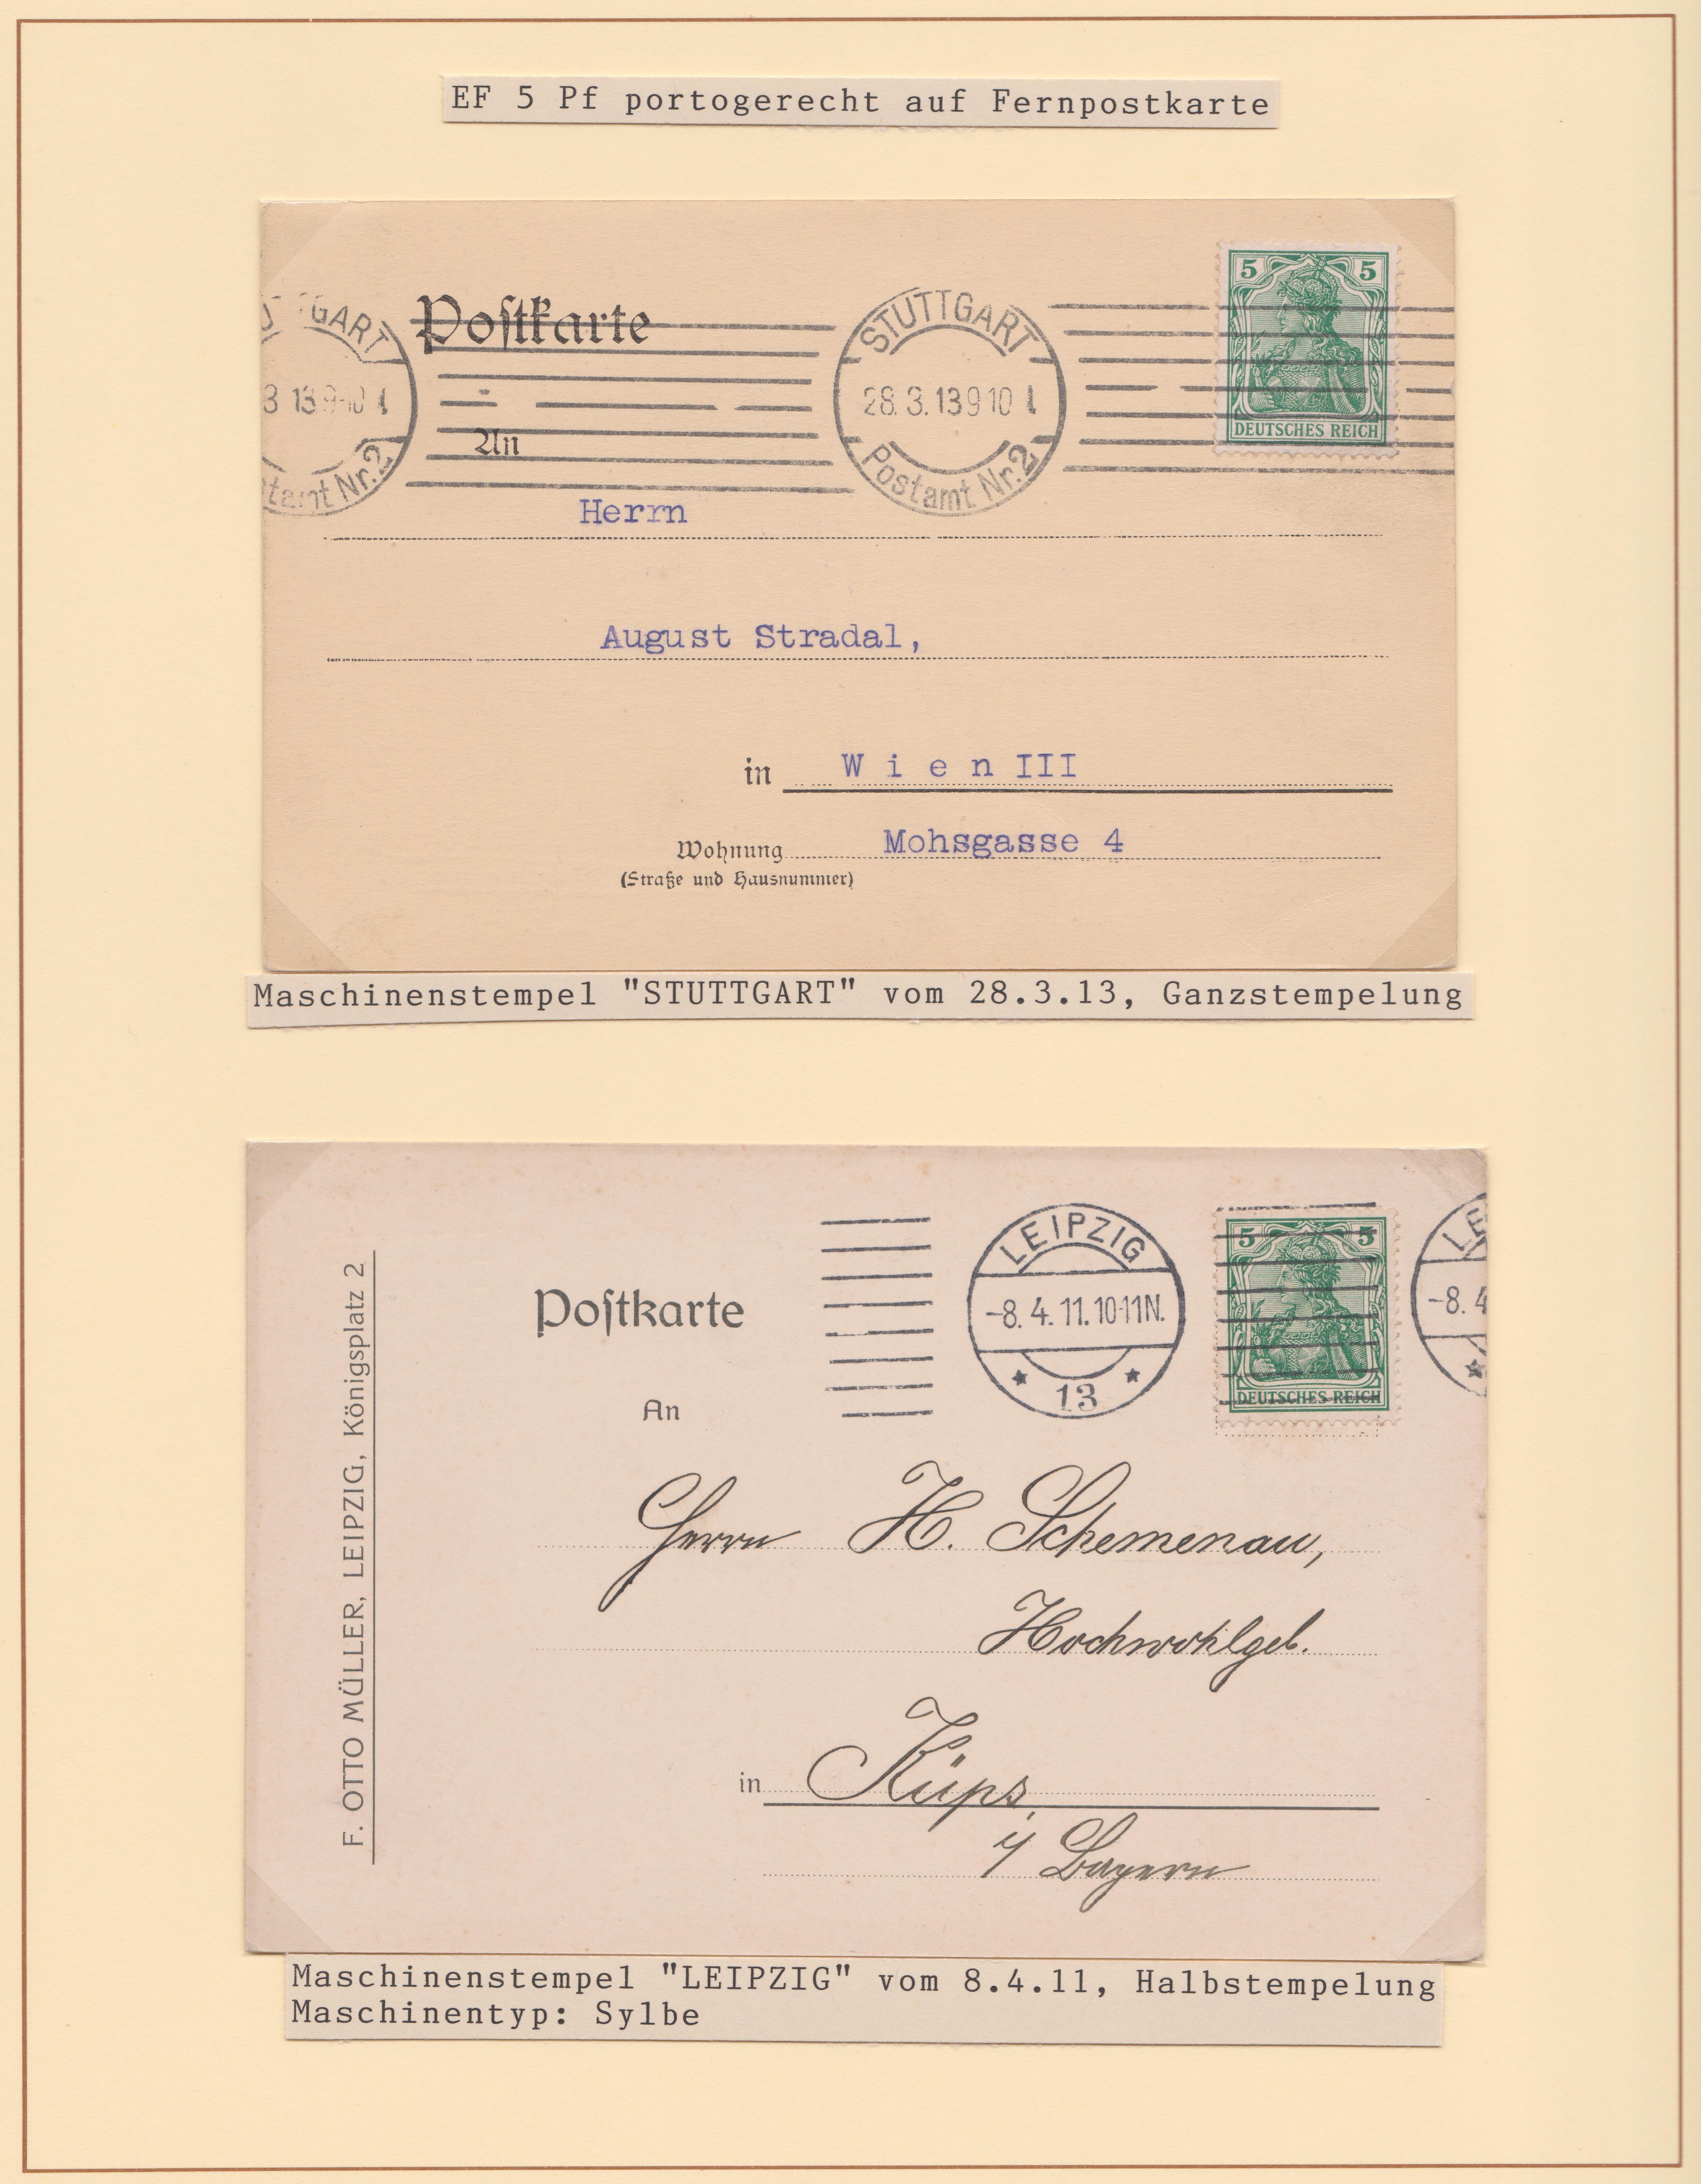 EF 5 Pf portogerecht auf Fernpostkarte
GART
3 13 9-10
tamt Nr.2
Postkarte
STUTTGART
28.3.13 9 10
Postamt Nr.2
5 5
DEUTSCHES REICH
An
Herrn
August Stradal,
in W i e n III
Wohnung Mohsgasse 4
(Straße und Hausnummer)
Maschinenstempel "STUTTGART" vom 28.3.13, Ganzstempelung
F. OTTO MÜLLER, LEIPZIG, Königsplatz 2
Postkarte
LEIPZIG
-8.4.11.10-11N.
* 13 *
5 5
DEUTSCHES REICH
LE
-8.4
*
An
Herrn H. Schemenau,
Hochwohlgeb.
in Küps
i/ Bayern
Maschinenstempel "LEIPZIG" vom 8.4.11, Halbstempelung
Maschinentyp: Sylbe